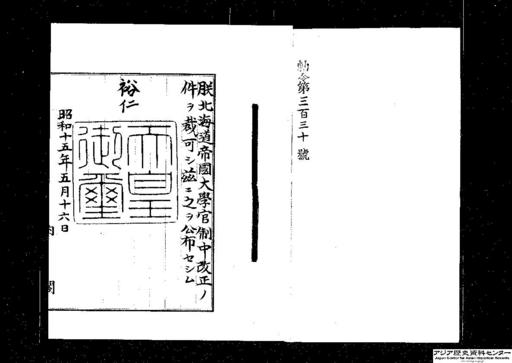 勅令第三百三十號
朕北海道帝國大學官制中改正ノ
件ヲ裁可シ茲ニ之ヲ公布セシム
裕仁
天皇
御璽
昭和十五年五月十六日
内閣
アジア歴史資料センター
Japan Center for Asian Historical Records